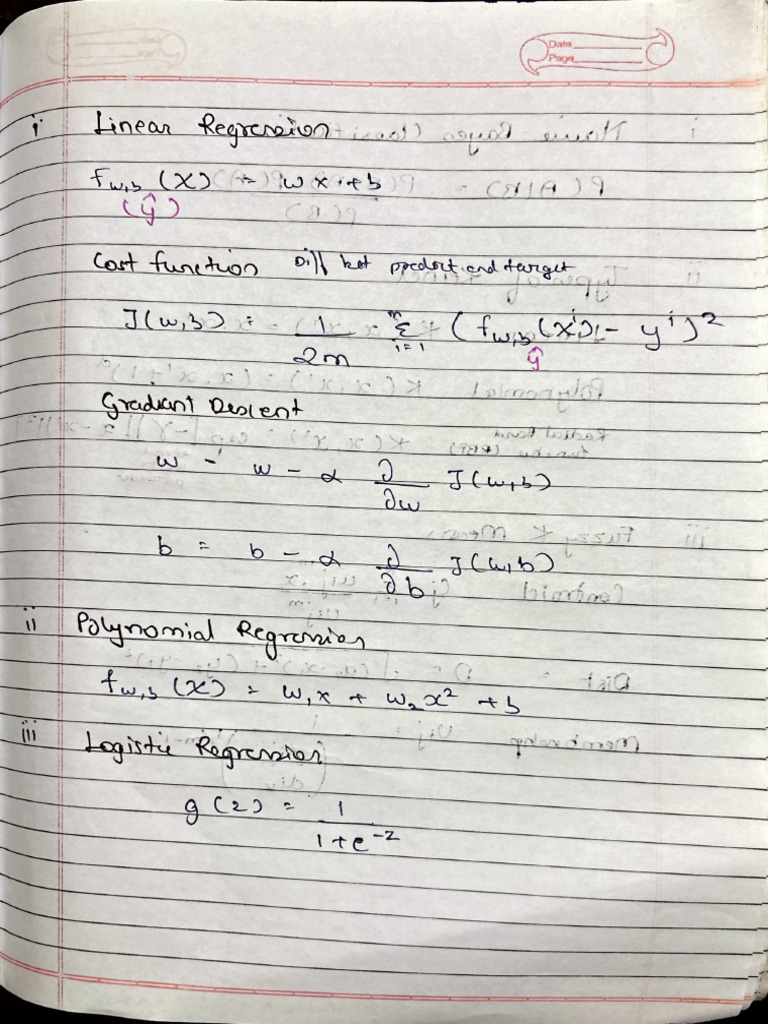 Date
Page
i Linear Regression
f w,b (x) = wx + b
(ŷ)
Cost function Diff bet predict and target
J(w,b) = 1/2m m Σ i=1 (f w,b (x^i) - y^i)^2
ŷ
Gradiant Descent
w = w - α ∂/∂w J(w,b)
b = b - α ∂/∂b J(w,b)
ii Polynomial Regression
f w,b (x) = w₁x + w₂x² + b
iii Logistic Regression
g(z) = 1/1+e^-z